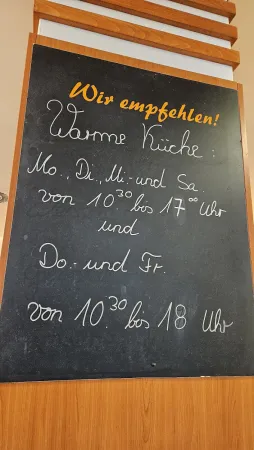 Wir empfehlen!
Warme Küche:
Mo., Di., Mi.- und Sa.
von 10³⁰ bis 17⁰⁰ Uhr
und
Do.- und Fr.
von 10.³⁰ bis 18 Uhr